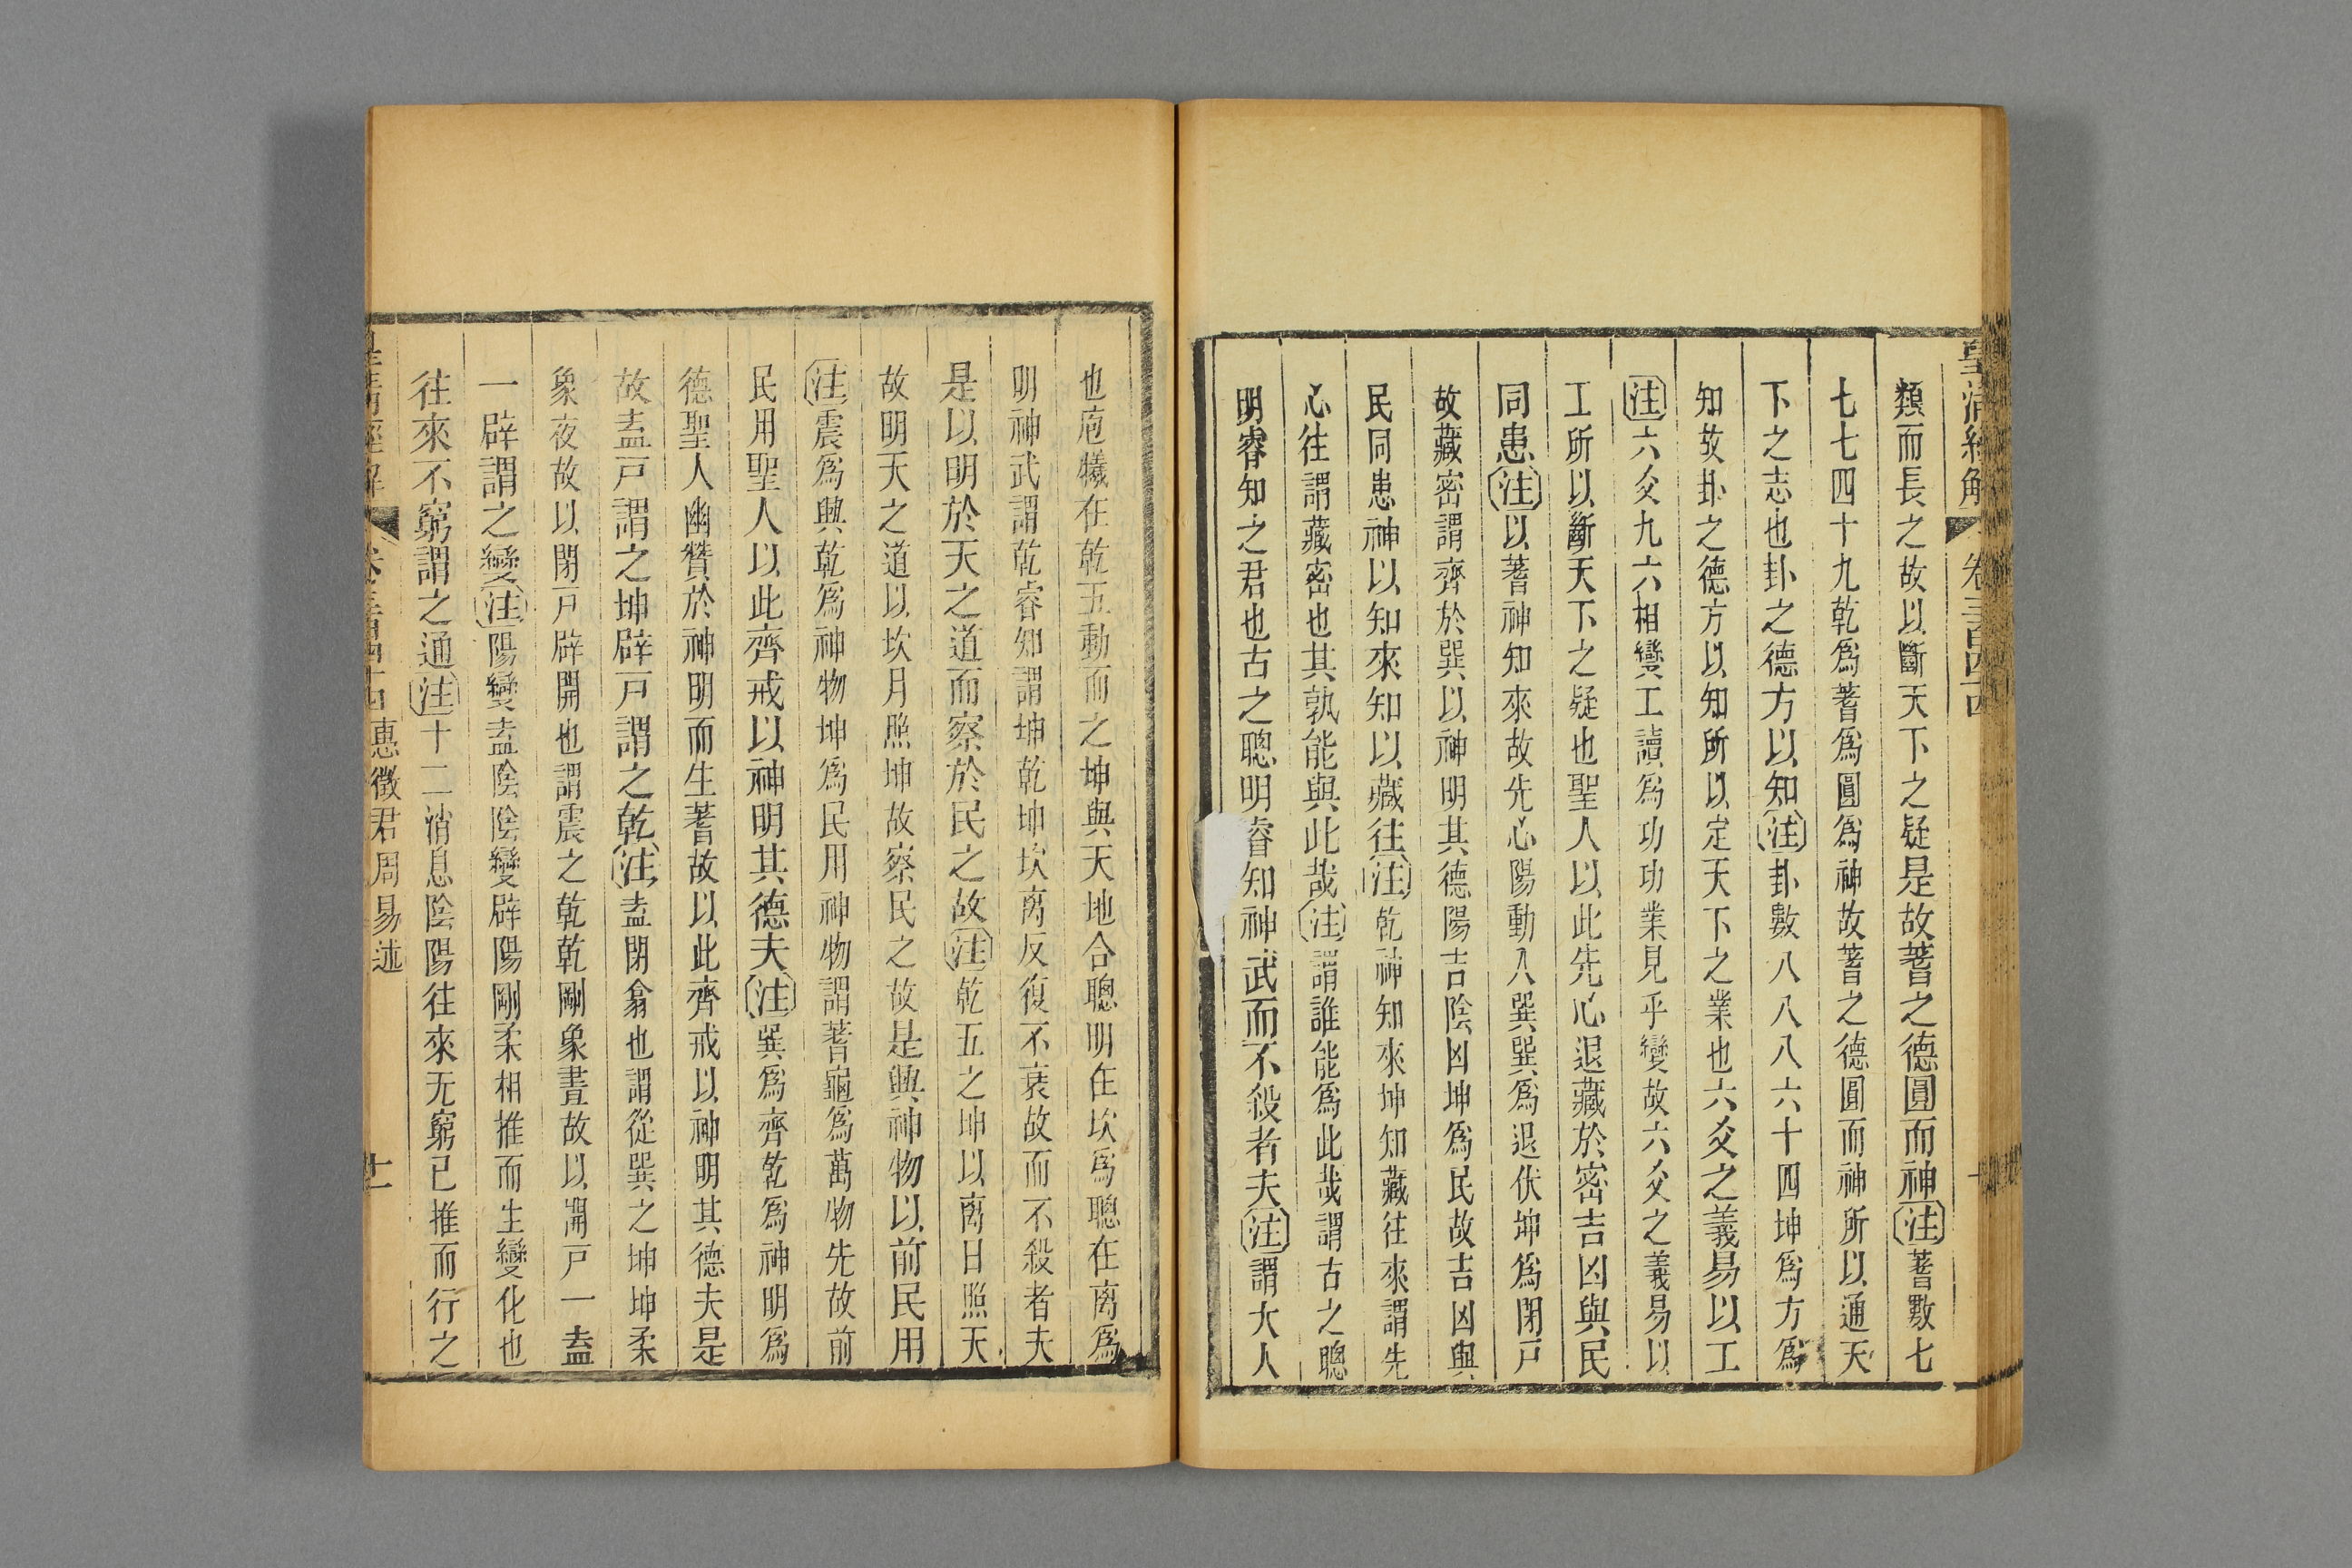 皇清經解 卷三百四四
類而長之故以斷天下之疑是故蓍之德圓而神注蓍數七
七七四十九乾爲蓍爲圓爲神故蓍之德圓而神所以通天
下之志也卦之德方以知注卦數八八八六十四坤爲方爲
知故卦之德方以知所以定天下之業也六爻之義易以工
注六爻九六相變工讀爲功功業見乎變故六爻之義易以
工所以斷天下之疑也聖人以此先心退藏於密吉凶與民
同患注以蓍神知來故先心陽動入巽巽爲退伏坤爲閉戸
故藏密謂齊於巽以神明其德陽吉陰凶坤爲民故吉凶與
民同患神以知來知以藏往注乾神知來坤知藏往來謂先
心往謂藏密也其孰能與此哉注謂誰能爲此哉謂古之聰
明睿知之君也古之聰明睿知神武而不殺者夫注謂大人
也庖犧在乾五動而之坤與天地合聰明在坎爲聰在离爲
明神武謂乾睿知謂坤乾坤坎离反復不衰故而不殺者夫
是以明於天之道而察於民之故注乾五之坤以离日照天
故明天之道以坎月照坤故察民之故是興神物以前民用
注震爲興乾爲神物坤爲民用神物謂蓍龜爲萬物先故前
民用聖人以此齊戒以神明其德夫注巽爲齊乾爲神明爲
德聖人幽贊於神明而生蓍故以此齊戒以神明其德夫是
故盍戸謂之坤辟戸謂之乾注盍閉翕也謂從巽之坤坤柔
象夜故以閉戸辟開也謂震之乾乾剛象晝故以開戸一盍
一辟謂之變注陽變盍陰陰變辟陽剛柔相推而生變化也
往來不窮謂之通注十二消息陰陽往來无窮已推而行之
皇清經解 卷三百四十四 惠徵君周易述 十一